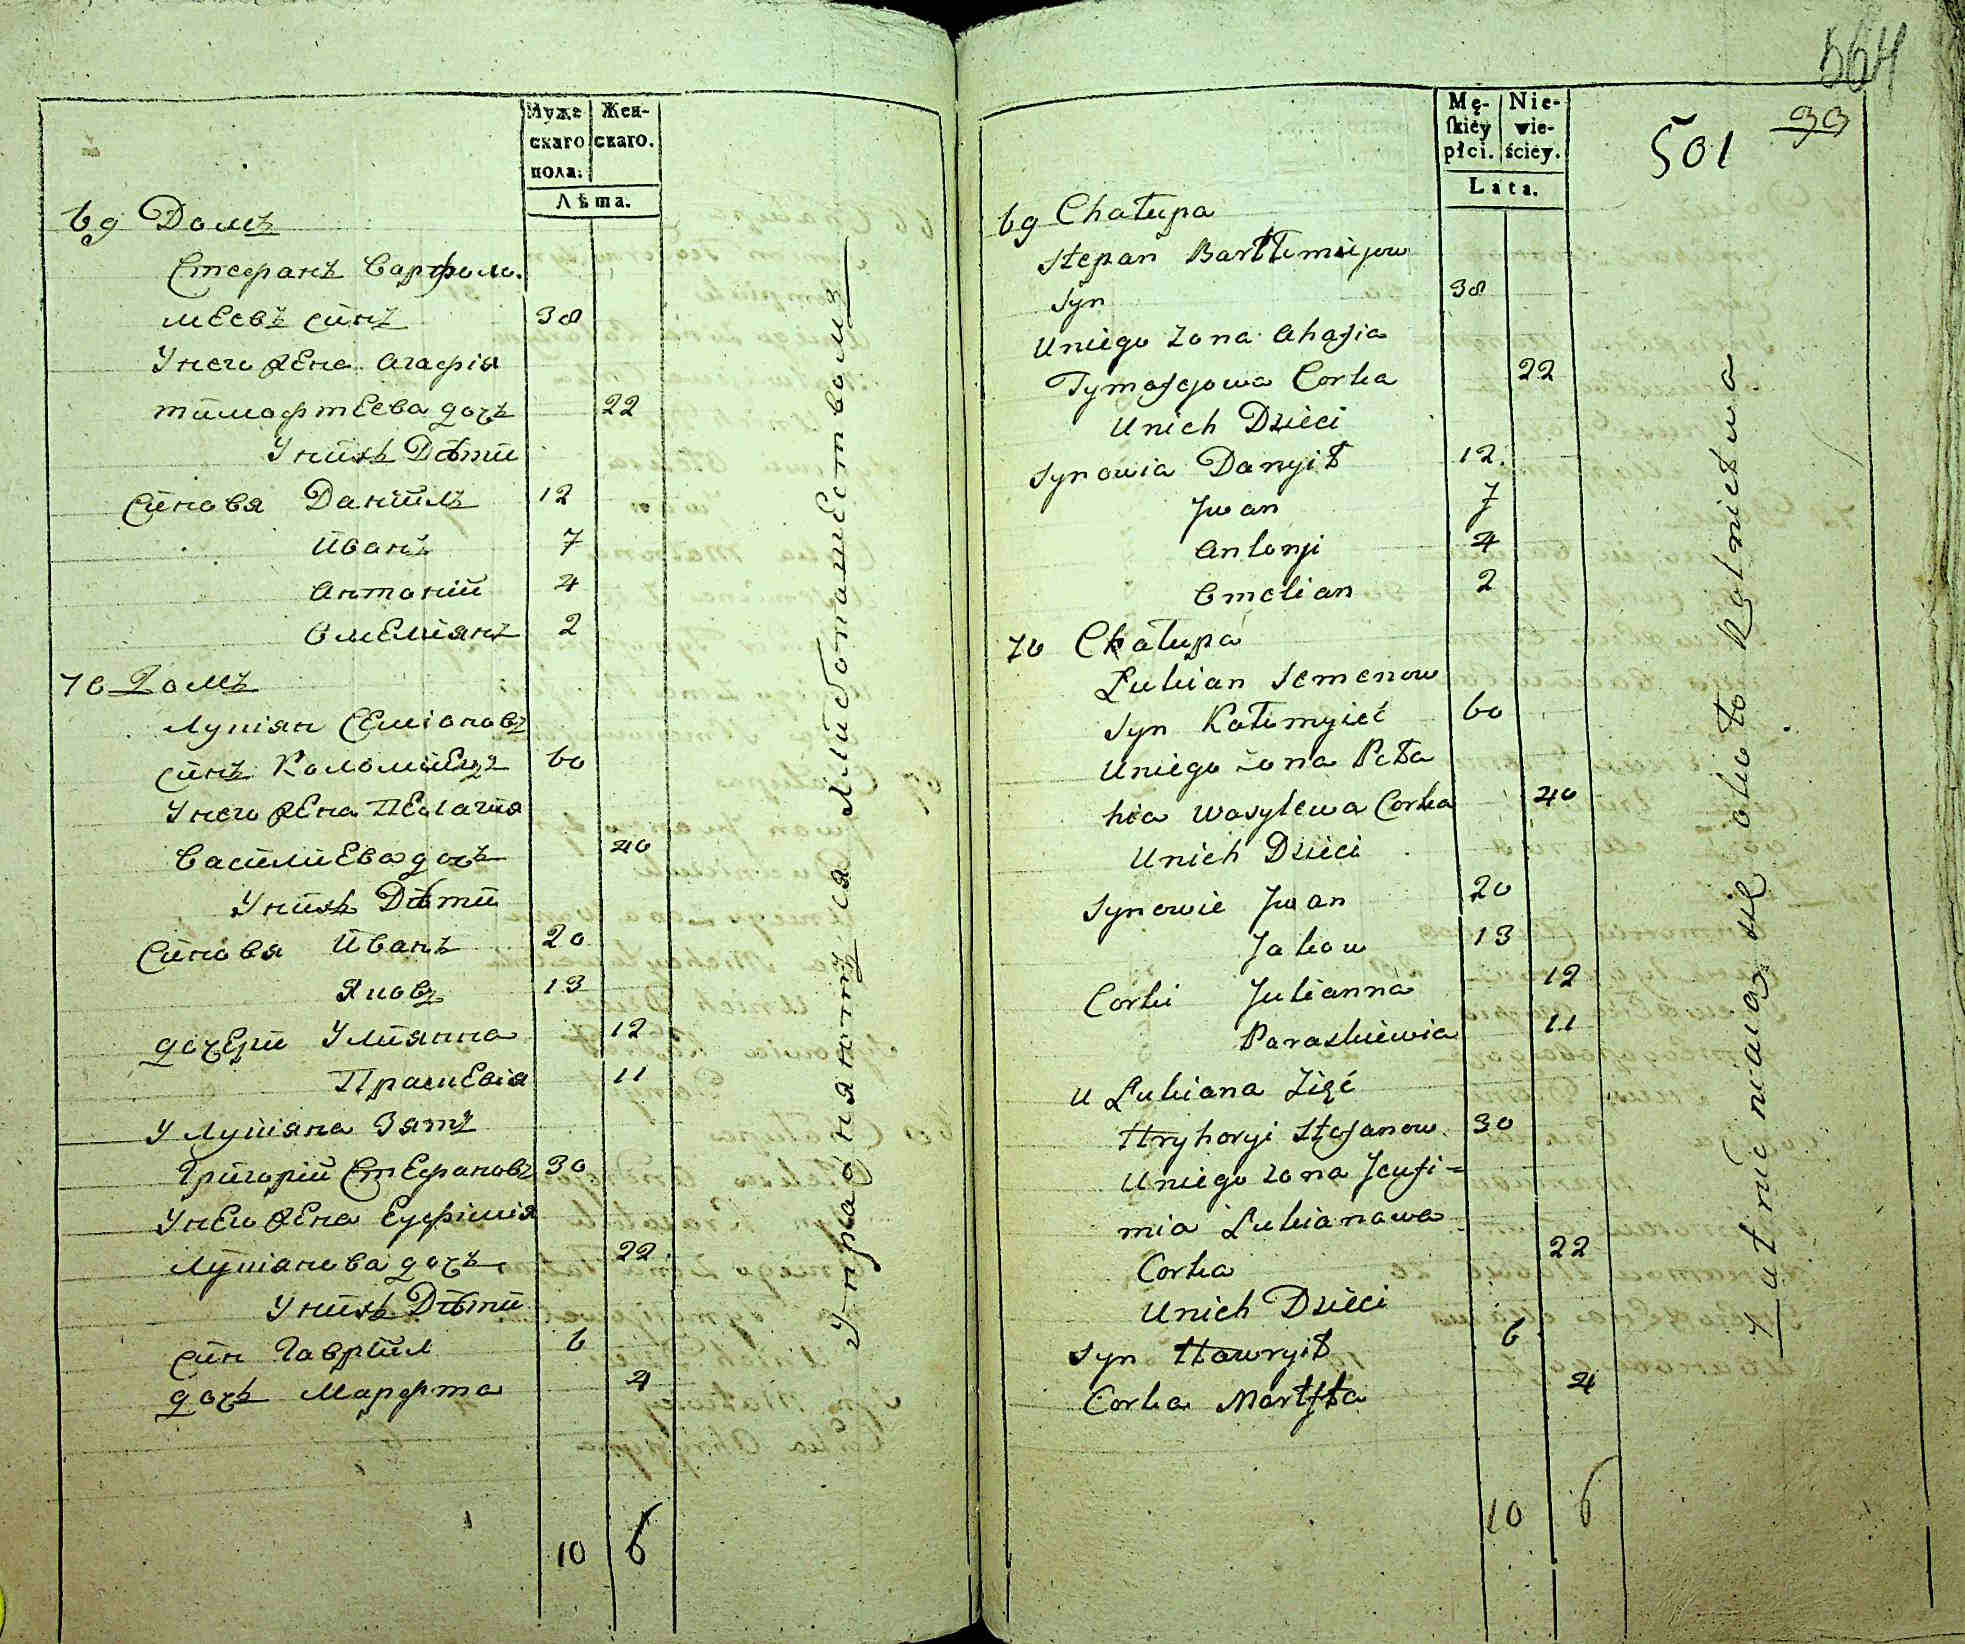 Муже
скаго
пола.
Жен-
скаго.
Лѣта.
69 Домъ
Стефанъ Варфоло.
меевъ синъ 38
Унего жена Агафія
тимофтеева дочъ 22
Унихъ Дѣти
Синовя Данилъ 12
Иванъ 7
Антоній 4
Омелиянъ 2
70 Домъ
Лукian Семіоновъ
синъ Коломиецъ 60
Унего жена Пелагия
Василиева дочъ 40
Унихъ Дѣти
Синовя Иванъ 20
Яковъ 13
дочери Улиянна 12
Праскевія 11
У Лукіяна Зять
Григорій Стефановъ 30
Унего жена Еуфимія
Лукіанова дочъ 22
Унихъ Дѣти
синъ Гавріил 6
дочъ Марфта 4
10 6
Упражняютъ ся хлибопашествомъ
564
Mę-
skiey
płci.
Nie-
wie-
ściey.
Lata.
501
99
69 Chałupa
Stepan Barttomiejow
Syn 38
Uniego zona Ahafia
Tymofejowa Corka 22
Unich Dzieci
Synowia Danyił 12
Jwan 7
Antonji 4
Omelian 2
70 Chałupa
Łukian Semenow
Syn Kołomyieć 60
Uniego żona Peła
hia Wasylewa Corka 40
Unich Dzieci
Synowie Jwan 20
Jakow 13
Corki Julianna 12
Paraskiewia 11
u Łukiana Zięć
Hryhoryi Stefanow 30
Uniego zona Jeufi=
mia Łukianowa
Corka 22
Unich Dzieci
Syn Hawryił 6
Corka Marfta 4
10 6
Zatrudniaią się około Rolnictwa